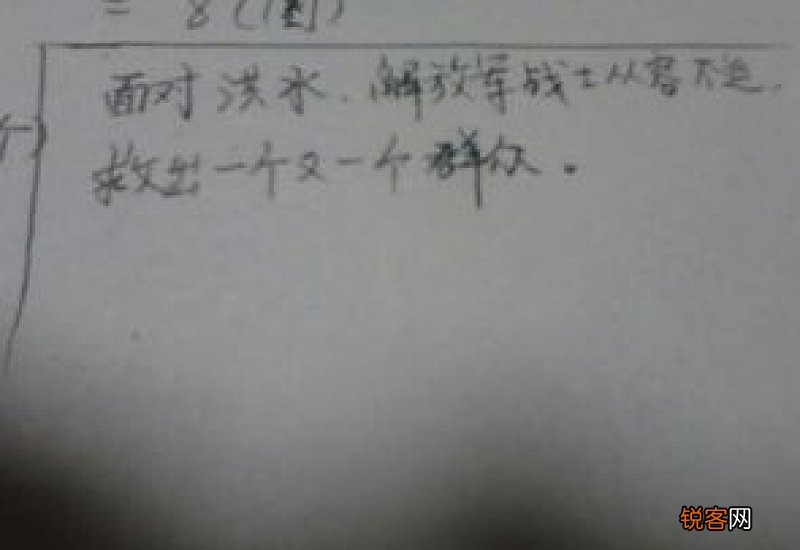 = 8(
面对洪水,解放军战士从容不迫,
救出一个又一个群众.
锐客网